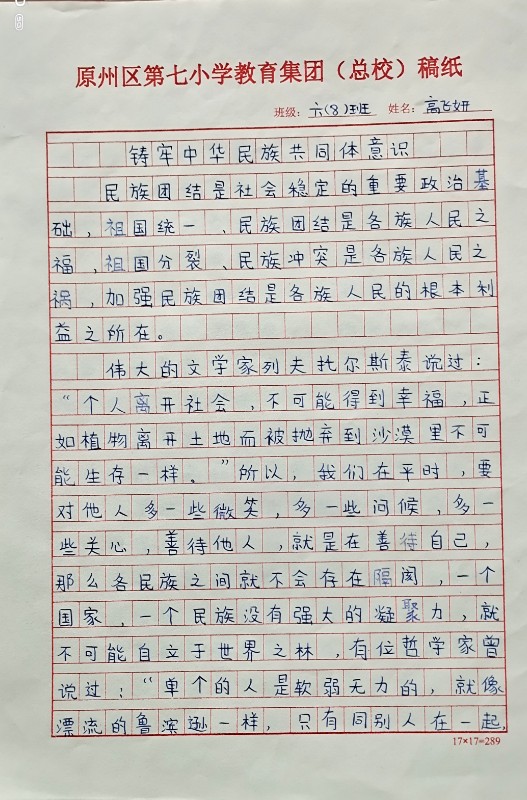 原州区第七小学教育集团（总校）稿纸
班级：六(8)班 姓名：高飞妍
铸牢中华民族共同体意识
民族团结是社会稳定的重要政治基
础，祖国统一、民族团结是各族人民之
福，祖国分裂、民族冲突是各族人民之
祸，加强民族团结是各族人民的根本利
益之所在。
伟大的文学家列夫托尔斯泰说过：
“个人离开社会，不可能得到幸福，正
如植物离开土地而被抛弃到沙漠里不可
能生存一样。”所以，我们在平时，要
对他人多一些微笑，多一些问候，多一
些关心，善待他人，就是在善待自己，
那么各民族之间就不会存在隔阂，一个
国家，一个民族没有强大的凝聚力，就
不可能自立于世界之林，有位哲学家曾
说过：“单个的人是软弱无力的，就像
漂流的鲁滨逊一样，只有同别人在一起，
17×17=289